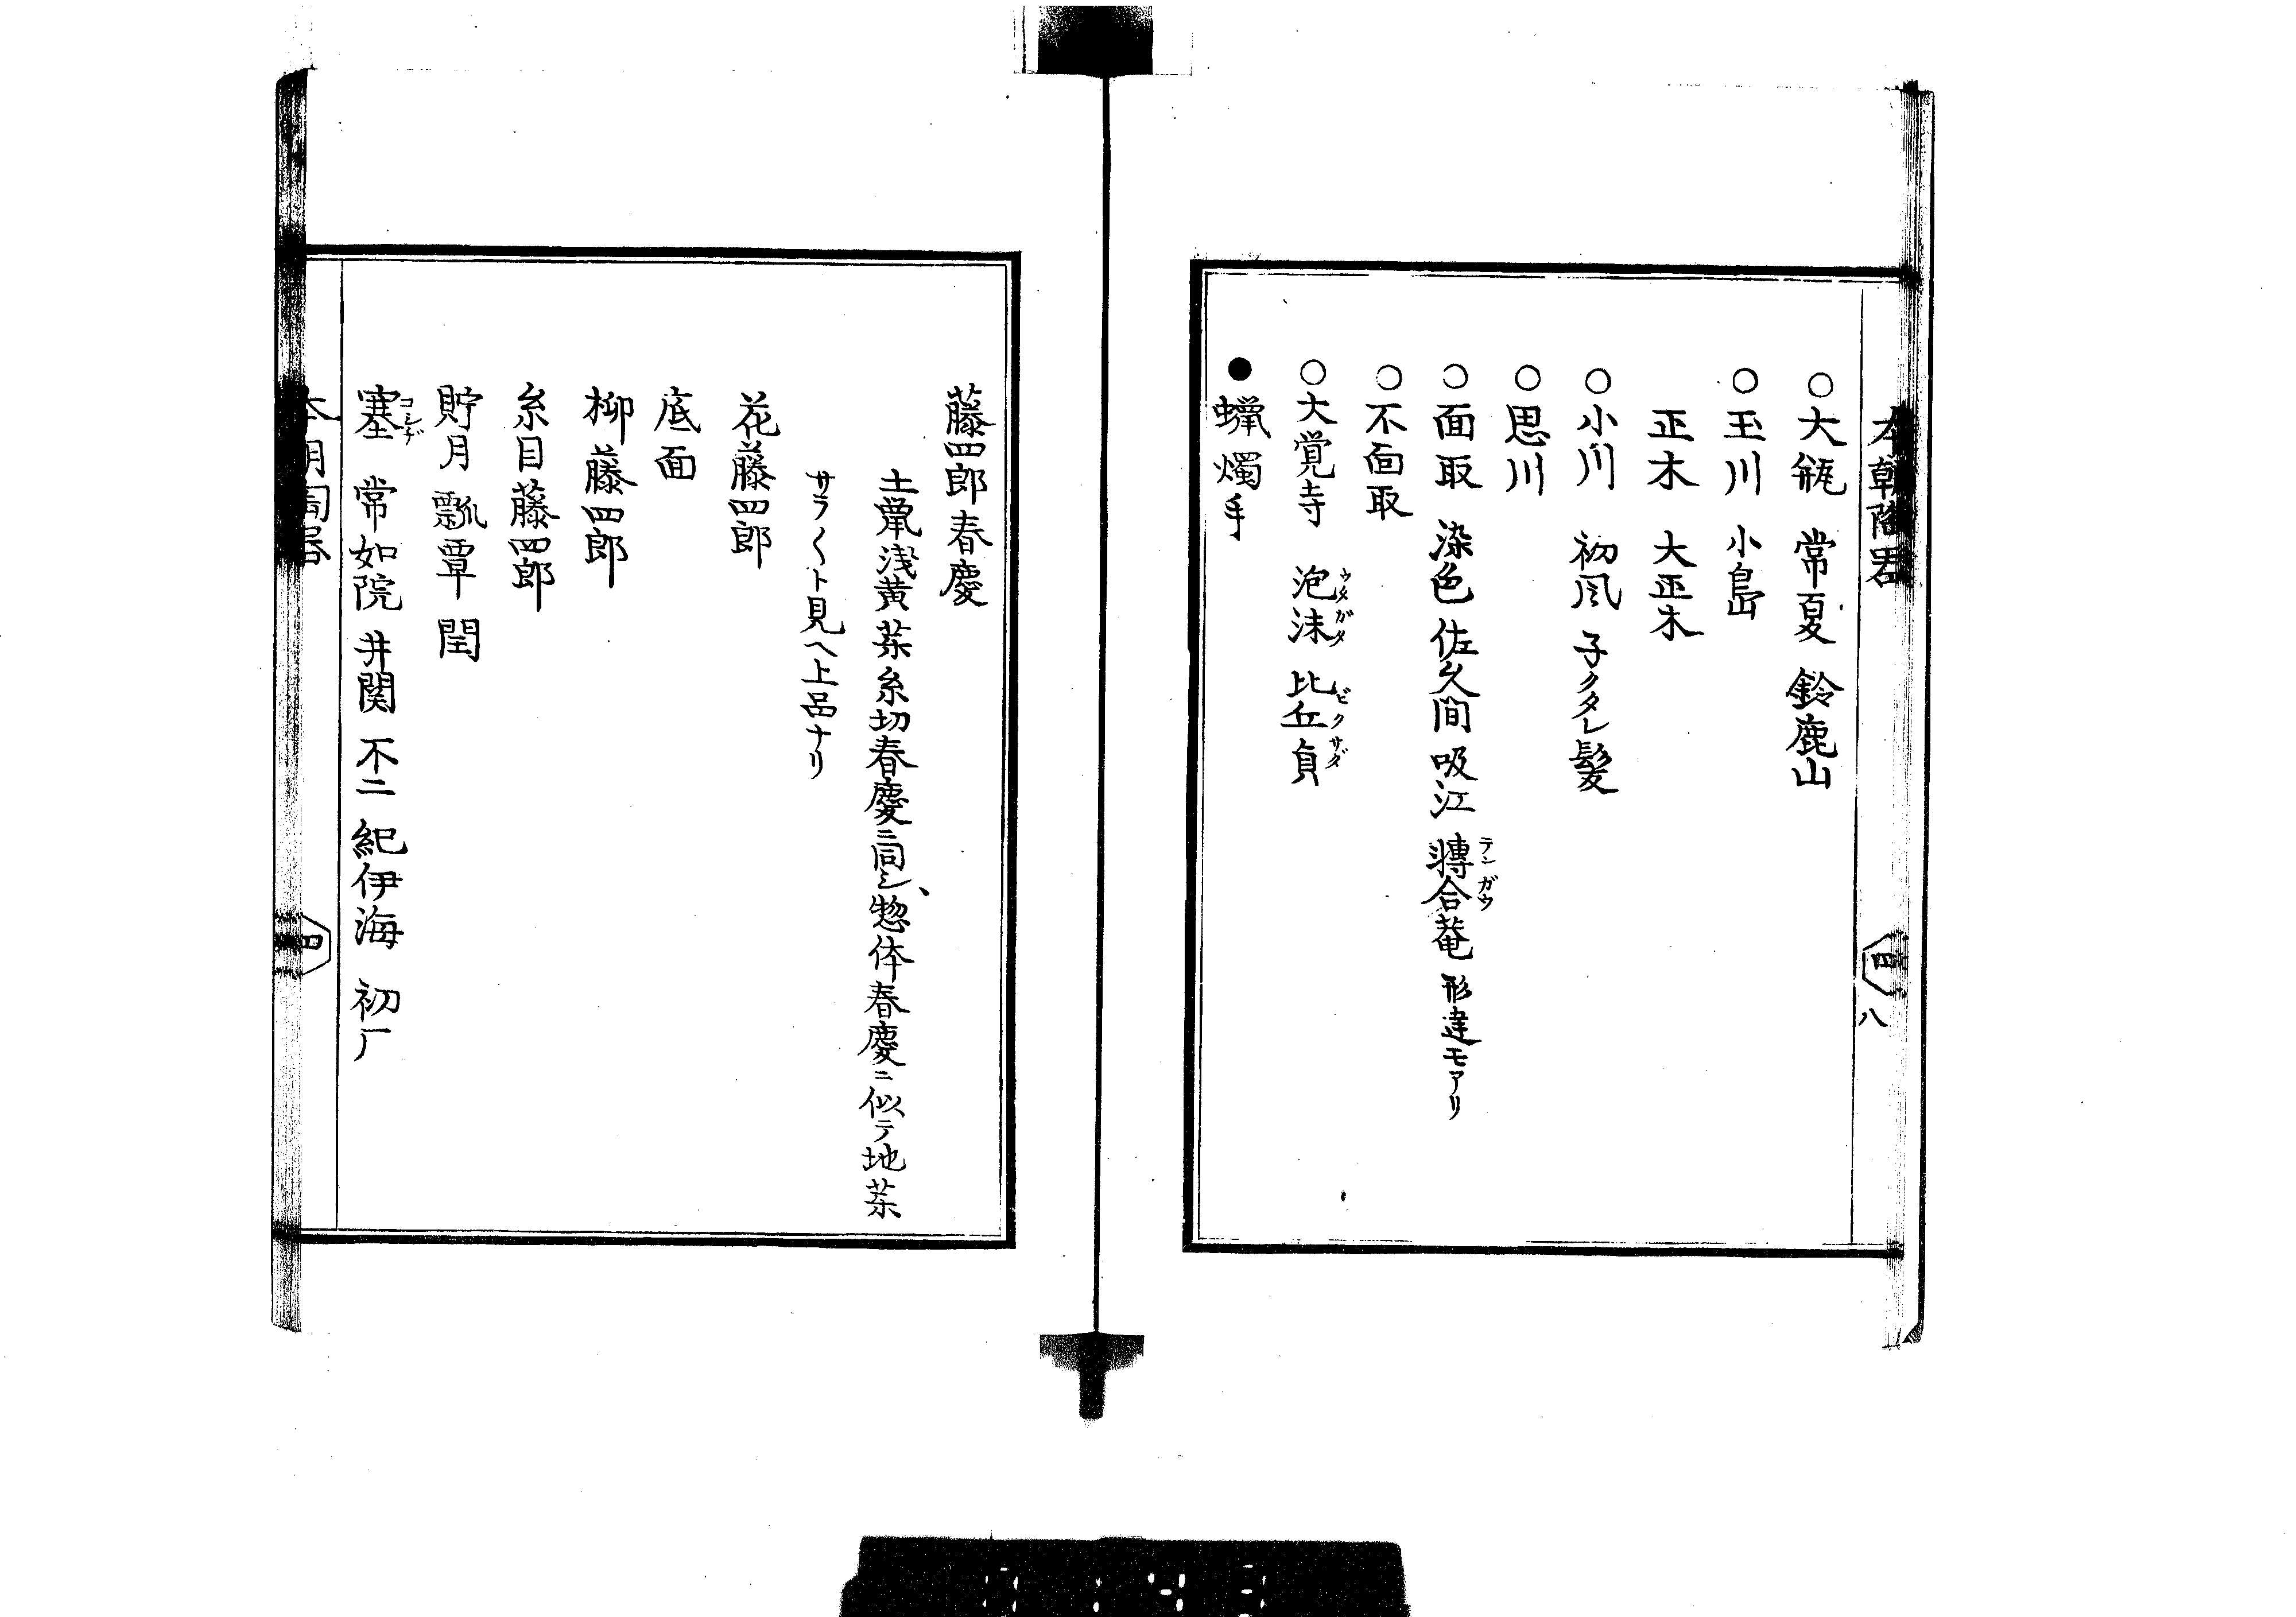 本朝陶器
四
八
○大瓶 常夏 鈴鹿山
○玉川 小島
正木 大正木
○小川 初風 子クタレ髪
○思川
○面取 染色 佐久間 吸江 轉合菴 形違モアリ
テンガウ
○不面取
○大覚寺 泡沫 比丘貞
ウタガタ ビクサダ
●蠟燭手
藤四郎春慶
土薬浅黄薬糸切春慶ニ同シ、惣体春慶ニ似テ地薬
サラ〱ト見ヘ上品ナリ
花藤四郎
底面
柳藤四郎
糸目藤四郎
貯月 瓢覃 閏
塞 常如院 井関 不二 紀伊海 初厂
本朝陶器
四